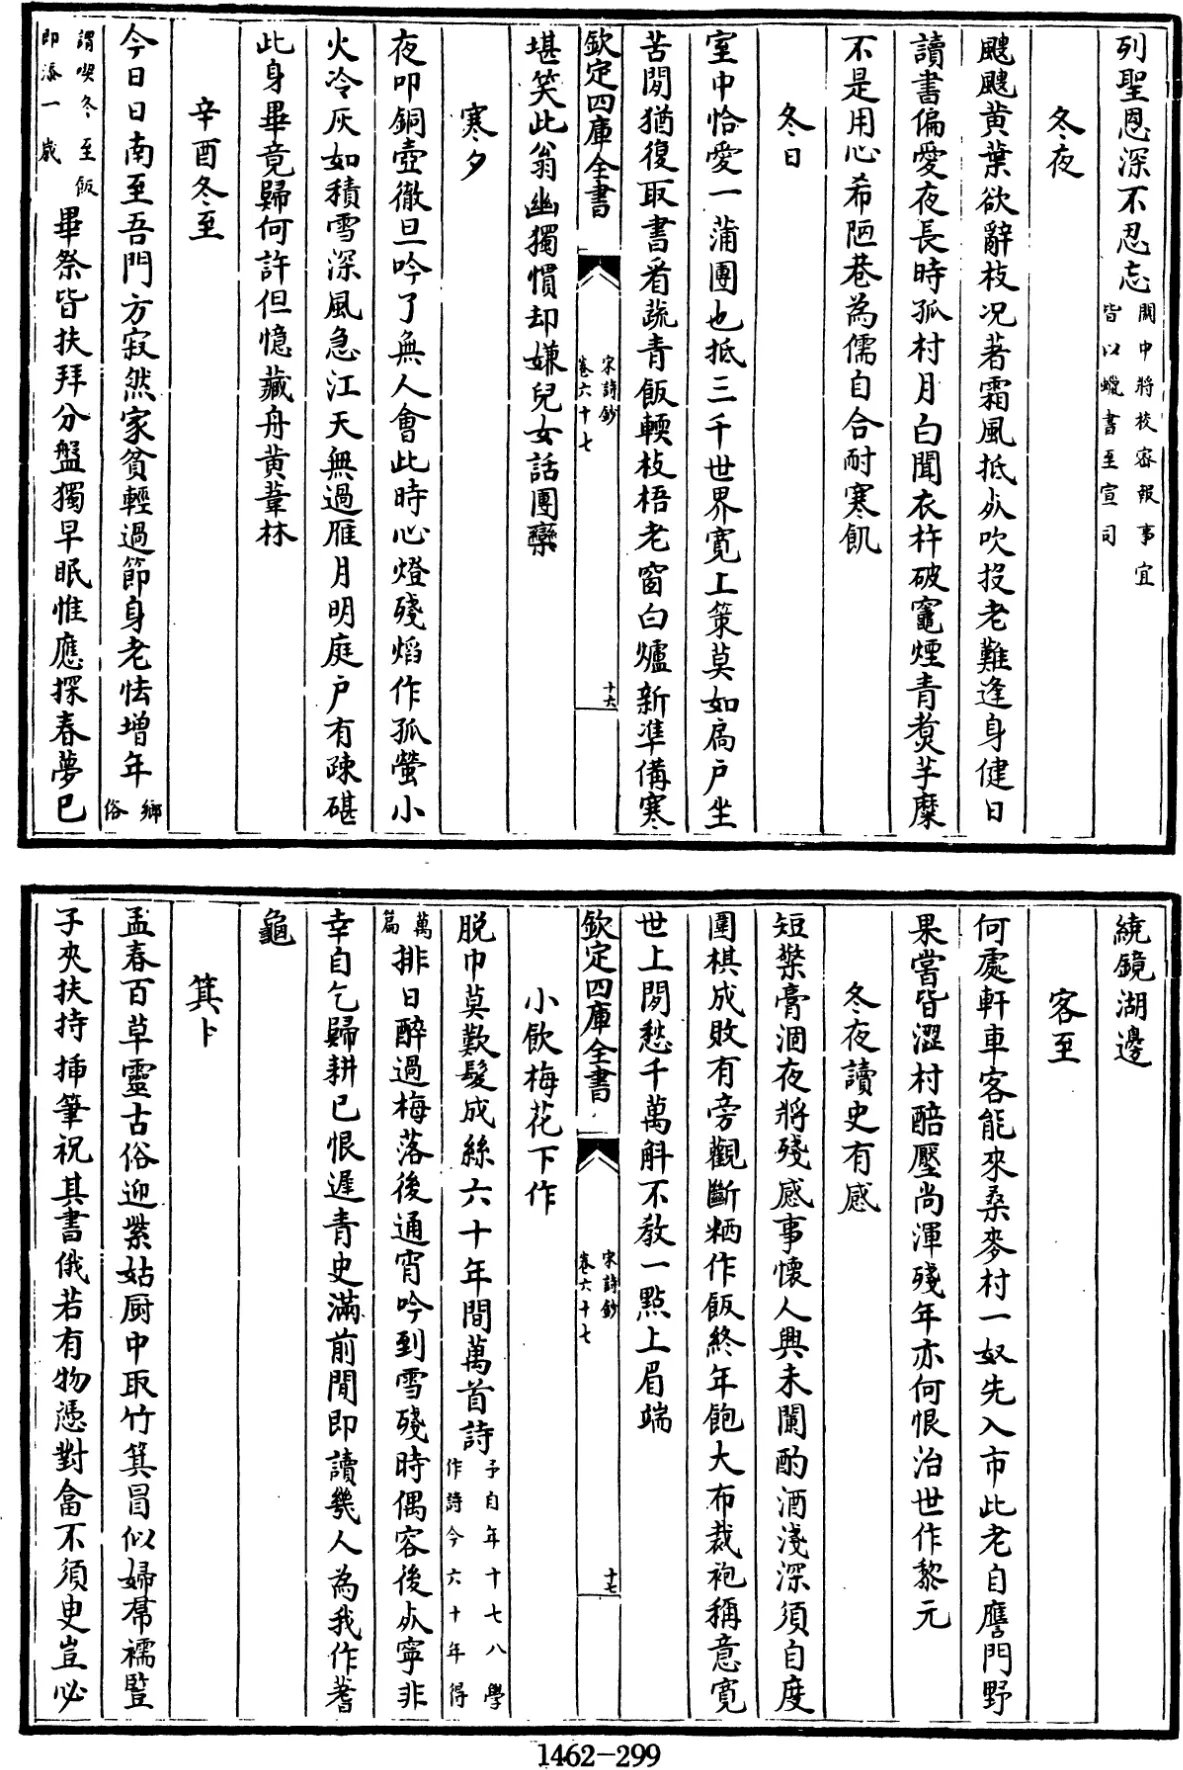 列聖恩深不忍忘關中將校密報事宜皆以蠟書至宣司
冬夜
颼颼黃葉欲辭枝况著霜風抵死吹投老難逢身健日
讀書偏愛夜長時孤村月白聞衣杵破竈煙青煑芋糜
不是用心希陋巷為儒自合耐寒飢
冬日
室中恰愛一蒲團也抵三千世界寛上策莫如扃户坐
苦閒猶復取書看蔬青飯輭枝梧老窗白爐新準備寒
欽定四庫全書
宋詩鈔
卷六十七
十六
堪笑此翁幽獨慣却嫌兒女話團欒
寒夕
夜叩銅壺徹旦吟了無人會此時心燈殘焰作孤螢小
火冷灰如積雪深風急江天無過雁月明庭户有疎碪
此身畢竟歸何許但憶藏舟黄葦林
辛酉冬至
今日日南至吾門方寂然家貧輕過節身老怯增年鄉俗
謂喫冬至飯即添一歲畢祭皆扶拜分盤獨早眠惟應探春夢已
繞鏡湖邊
客至
何處軒車客能來桑麥村一奴先入市此老自譍門野
果嘗皆澀村醅壓尚渾殘年亦何恨治世作黎元
冬夜讀史有感
短檠膏涸夜將殘感事懷人興未闌酌酒淺深須自度
圍棋成敗有旁觀斷粞作飯終年飽大布裁袍稱意寛
世上閒愁千萬斛不教一點上眉端
欽定四庫全書
宋詩鈔
卷六十七
十七
小飲梅花下作
脱巾莫歎髮成絲六十年間萬首詩予自年十七八學作詩今六十年得
萬篇排日醉過梅落後通宵吟到雪殘時偶容後死寧非
幸自乞歸耕已恨遲青史滿前閒即讀幾人為我作蓍
龜
箕卜
孟春百草靈古俗迎紫姑厨中取竹箕冒似婦帬襦豎
子夾扶持揷筆祝其書俄若有物憑對畣不須臾豈必
1462-299